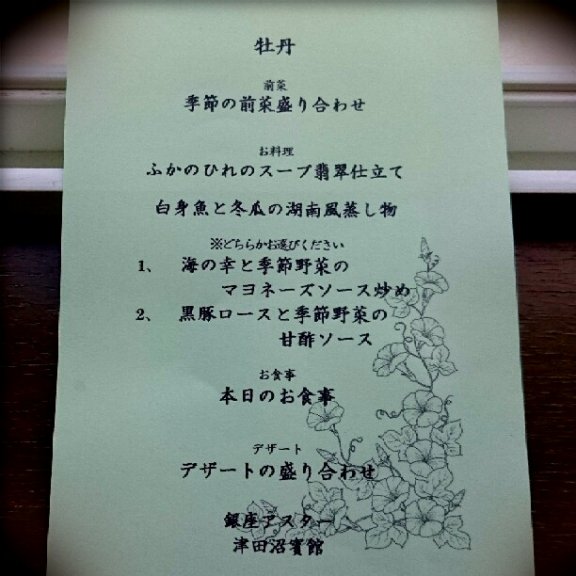 牡丹
前菜
季節の前菜盛り合わせ
お料理
ふかのひれのスープ翡翠仕立て
白身魚と冬瓜の湖南風蒸し物
※どちらかお選びください
1、 海の幸と季節野菜の
マヨネーズソース炒め
2、 黒豚ロースと季節野菜の
甘酢ソース
お食事
本日のお食事
デザート
デザートの盛り合わせ
銀座アスター
津田沼賓館